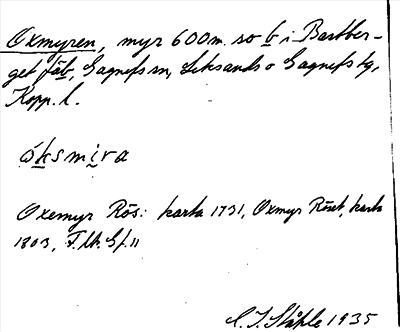 Oxmyren, myr 600 m. so b i Bastber-
get fäb, Gagnefs sn, Leksands o Gagnefs tg,
Kopp. l.
óksmi̯ra
Oxemyr Rös: karta 1731, Oxmyr Röset, karta
1803,
C. I. Ståhle 1935